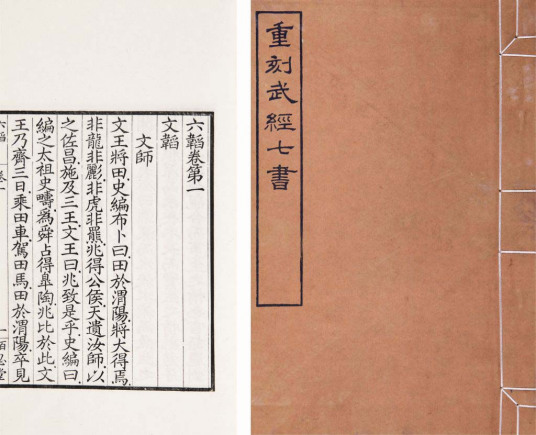 重刻武經七書
六韜卷第一
文韜
文師
文王將田史編布卜曰田於渭陽將大得焉
非龍非彲非虎非羆兆得公侯天遺汝師以
之佐昌施及三王文王曰兆致是乎史編曰
編之太祖史疇爲舜占得臯陶兆比於此文
王乃齋三日乘田車駕田馬田於渭陽卒見
六韜 卷一